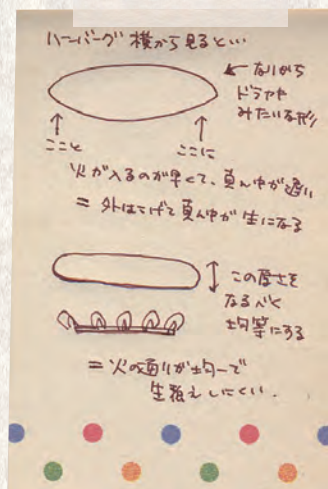 ハンバーグ 横から見ると…
← なりがち
ドラヤキ
みたいな形
↑ ↑
ここと ここに
火が入るのが早くて、真ん中が遅い
= 外はこげて真ん中が生になる
↕ この厚さを
なるべく
均等にする
= 火の通りが均一で
生焼えしにくい.